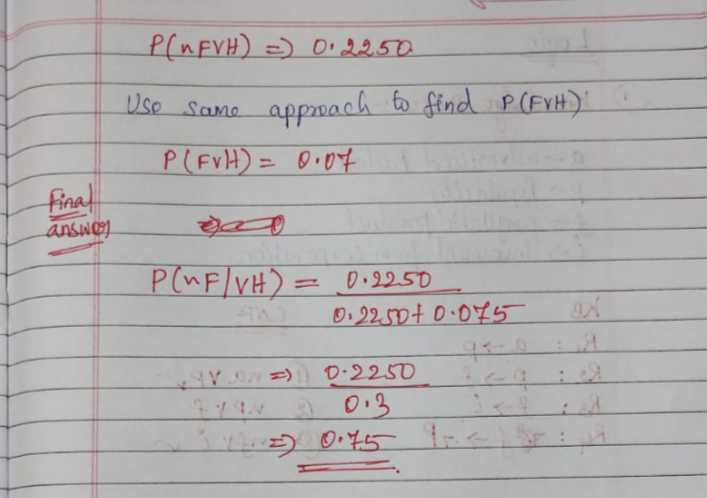 P(nFVH) => 0.2250
Use same approach to find P(FVH)
P(FVH) = 0.07
Final
answer
P(nF/VH) = 0.2250
0.2250 + 0.075
=> 0.2250
0.3
=> 0.75